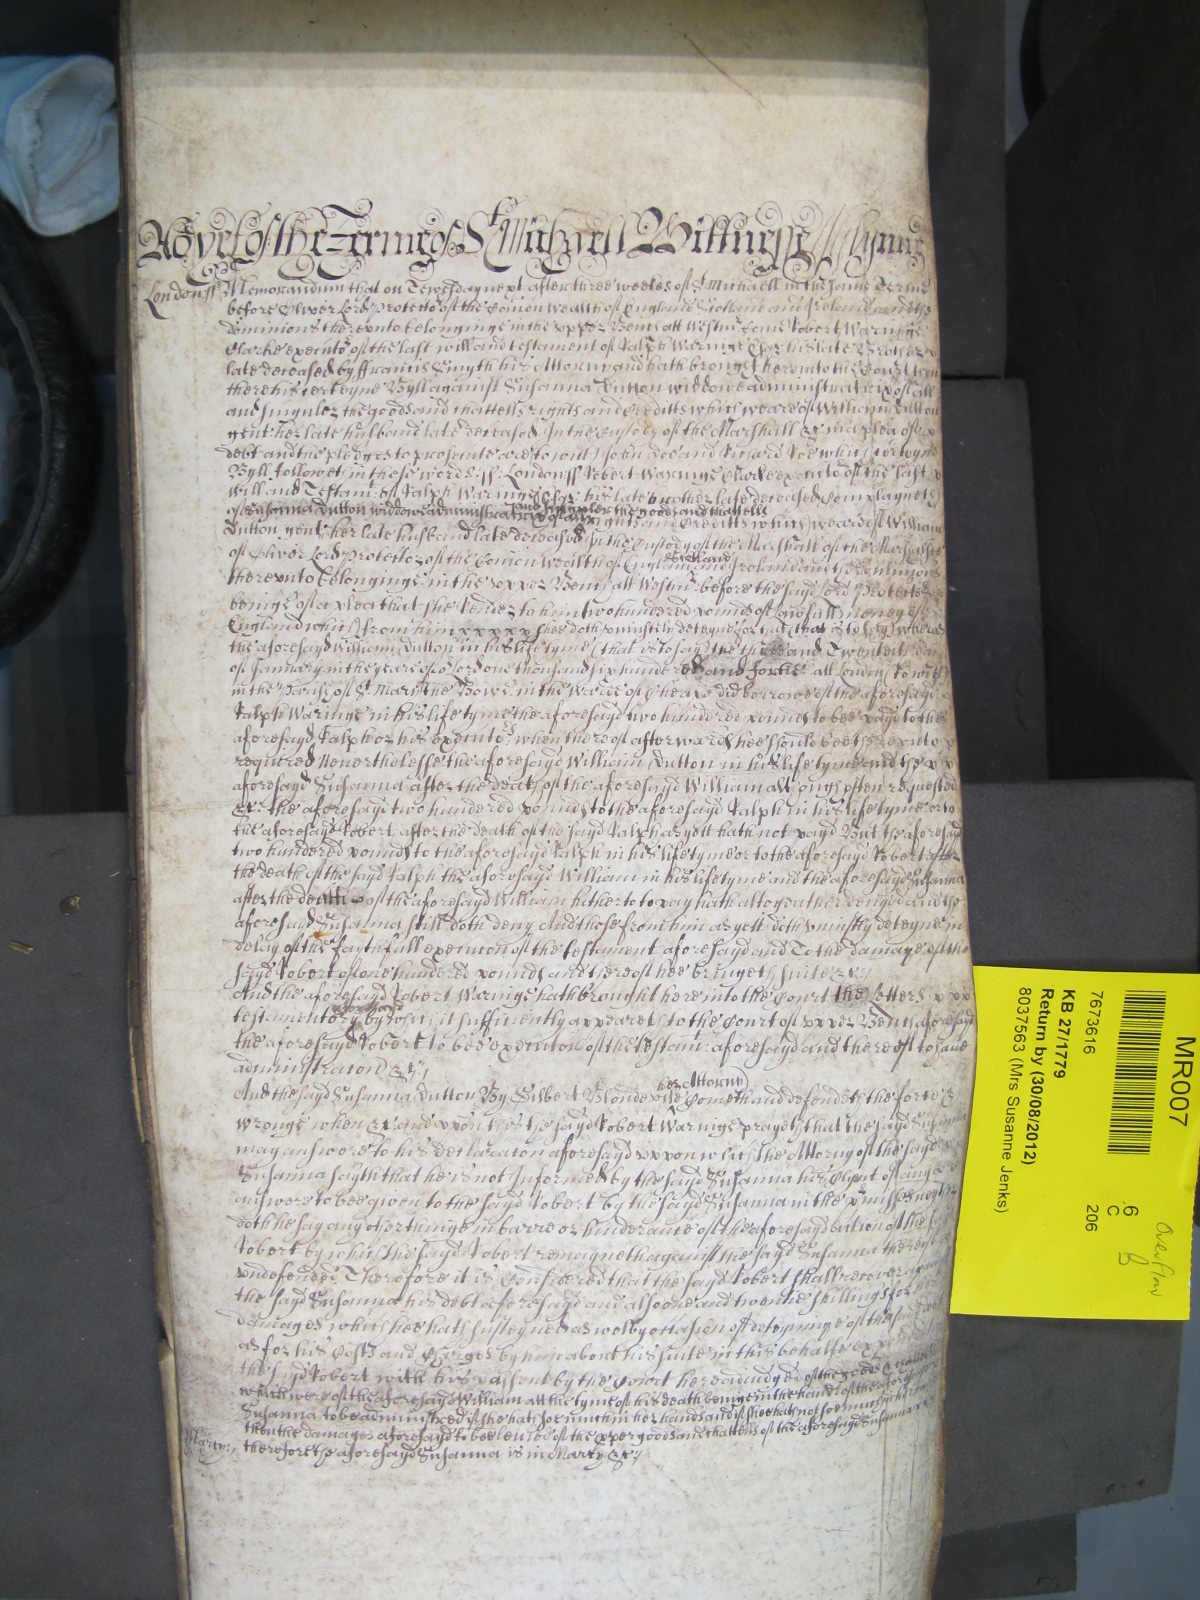 As yet of the Terme of St Michaell Wittnesse
London ss Memorandum that on Tewesday next after three weekes of St Michaell in the same Terme
before Oliver Lord Protector of the Comon Wealth of England Scotland and Ireland and the
dominions thereunto belonginge in the upper Bench att Westmr Come Robert Waringe
Clarke executor of the last will and testament of Ralph Waringe his late Brother
late deceased by ffrancis Smyth his Attorny and hath brought here into the Court then
there his certeyne Byll against Susanna Dutton widdowe administratrix of all
and singuler the goods and chattells rights and creditts which weare of William Dutton
gent her late husband late deceased In the Custody of the Marshall &c in a plea of
debt and the pledges to prosecute are to witt John Doe and Richard Roe which certeyne
Byll followeth in these words ss London ss Robert Waringe Clarke executor of the last
will and Testamt of Ralph Waringe his late brother late deceased Complayneth
of Susanna Dutton widdowe administratrix of all and singuler the goods and chattells
rights and Creditts which weare of William
Dutton gent her late husband late deceased In the Custody of the Marshall of the Marshalsie
of Oliver Lord Protector of the Comon Wealth of England Scotland and Ireland and the dominions
thereunto belonginge in the upper Bench att Westmr before the sayd Lord Protector
beinge of a plea that she render to him two hundred pounds of lawfull money of
England which from him shee doth uniustly deteyne for yat (that is to say) whereas
the aforesayd William Dutton in his life tyme (that is to say) the three and Twentieth day
of January in the yeare of our Lord one thousand six hundered and fortie att London (to witt)
in the Parish of St Mary the Bowe in the Warde of Cheape did borrowe of the aforesayd
Ralph Waringe in his life tyme the aforesayd two hundered pounds to bee payd to the
aforesayd Ralph or his executors when thereof afterwards hee should bee thereunto
required Neverthelesse the aforesayd William Dutton in his life tyme and the
aforesayd Susanna after the death of the aforesayd William although often requested
&c the aforesayd two hundered pounds to the aforesayd Ralph in his life tyme or to
the aforesayd Robert after the death of the sayd Ralph as yett hath not payd But the aforesayd
two hundered pounds to the aforesayd Ralph in his life tyme or to the aforesayd Robert after
the death of the sayd Ralph the aforesayd William in his life tyme and the aforesayd Susanna
after the death of the aforesayd William hitherto to pay hath altogather denyed and the
aforesayd Susanna still doth deny And those from him as yett doth uniustly deteyne in
delay of the faythfull execucon of the testament aforesayd and To the damage of the
sayd Robert of one hundered pounds and thereof hee bringeth suite &c
And the aforesayd Robert Waringe hath brought here into the Court the letters
testamentory aforesayd by which it sufficiently appeareth to the Court of upper Bench aforesayd
the aforesayd Robert to bee executor of the testamt aforesayd and thereof to have
administracon &c
And the sayd Susanna Dutton By Gilbert Blondevile her Attorny Cometh and defendeth the force &
wronge when &c and uppon this the sayd Robert Waringe prayeth that the sayd Susanna
may answere to his declaracon aforesayd uppon which the Attorny of the sayd
Susanna sayth that he is not Informed by the sayd Susanna his Clyent of any
answere to bee given to the sayd Robert by the sayd Susanna in the premisses neyther
doth he say any other thinge in barre or hinderance of the aforesayd accion of the sayd
Robert by which the sayd Robert remayneth against the sayd Susanna thereof
undefended Therefore it is Considered that the sayd Robert shall recover against
the sayd Susanna his debt aforesayd and also one and twentie shillings for
damages which hee hath susteyned as well by occasion of deteyninge of the sayd debt
as for his Costs and Charges by him about his suite in this behalfe
the sayd Robert with his assent by the Court here adiudged of the goods & chattells
which were of the aforesayd William att the tyme of his death beinge in the hands of the aforesayd
Susanna to be administred if she hath soe much in her hands and if shee hath not soe much in her hands
then the damages aforesayd to bee levied of the proper goods and chattells of the aforesayd Susanna
therefore the aforesayd Susanna is in Marcy &c
Marcy
MR007
7673616
KB 27/1779
Return by (30/08/2012)
8037563 (Mrs Susanne Jenks)
6
C
206
Overflow